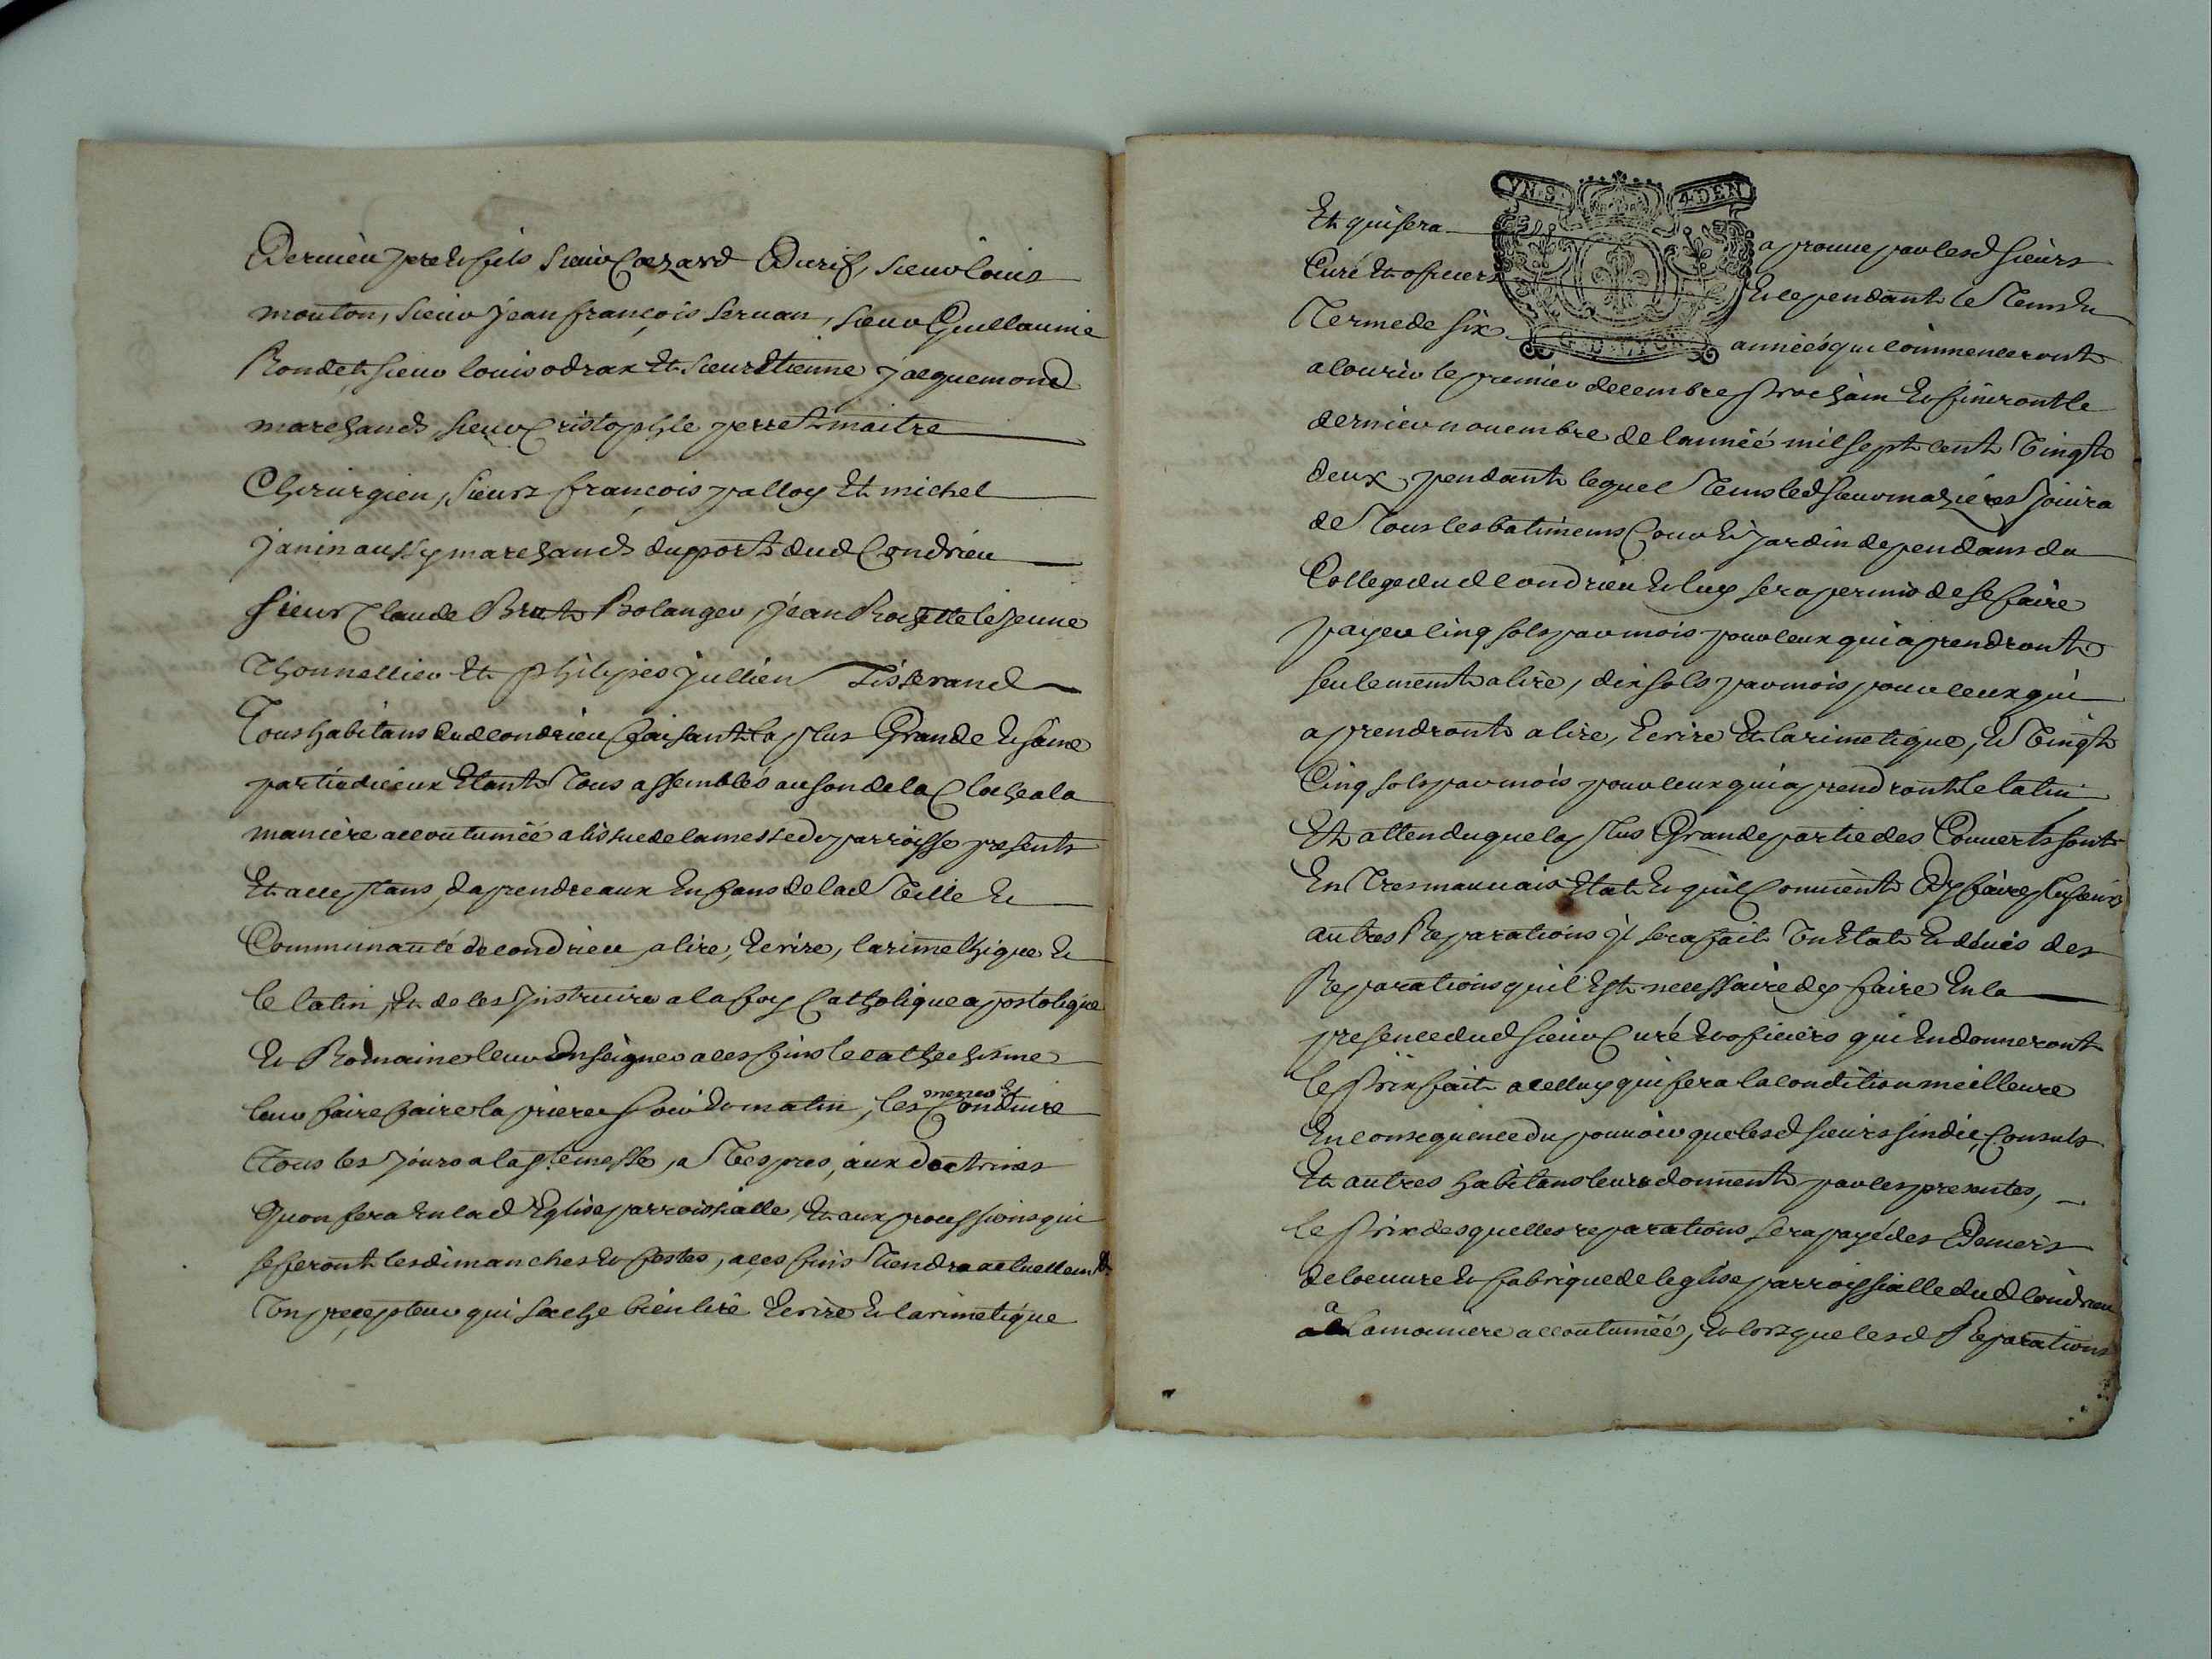 Dernieu pere et fils sieur Cæzard Durif, sieur louis
mouton, sieur jean françois seruan, sieur Guillaume
Rondet, sieur louis odrax Et sieur Etienne jacquemond
marchands, sieur Cristophle perret maitre
Chirurgien, sieurs françois palloy Et michel
janin aussy marchands du port dud Condrieu
sieur Claude Brut Bolanger, jean Rochette le jeune
Thonnellier Et philypes jullien Tisserand
Tous habitans dud Condrieu faisant la plus Grande Et saine
partie diceux Etant Tous assemblés au son de la Cloche a la
manière accoutumée a lissue de la messe de parroisse presents
Et acceptans, daprendre aux Enfans de lad Ville Et
Communauté de condrieu, a lire, Ecrire, larimethique Et
le latin, Et de les Instruire a la foy Catholique apostolique
Et Romaine leur Enseigner a ces fins le cathechisme
leur faire faire la priere soir Et matin, les mener Et Conduire
Tous les jours a la ste messe, a Vespres, aux doctrines
Quon fera En lad Eglise parroissialle, Et aux processions qui
se feront les dimanches Et festes, a ces fins Tiendra actuellemt
Un precepteur qui sache bien lire Ecrire Et larimetique
VN.S. 4.DEN
G.DE LYON
Et qui sera aprouué par lesd sieurs
Curé Et officiers Et ce pendant le Tems Et
Terme de six années qui commenceront
a courir le premier decembre prochain Et finiront le
dernier nouembre de lannéé mil sept cent Vingt
deux, pendant lequel Tems led sieur maziéres jouira
de Tous les batimens Cour Et jardin dependans du
College dud condrieu Et luy sera permis de se faire
payer cinq sols par mois pour ceux qui aprendront
seulement a lire, dix sols par mois pour ceux qui
aprendront a lire, Ecrire Et larimetique, Et Vingt
Cinq sols par mois pour ceux qui aprendront le latin
Et attendu que la plus Grande partie des Couverts sont
En Tres mauuais Etat Et quil Conuient dy faire plusieurs
autres Reparations Il sera fait Un Etat Et déuis des
Reparations quil Est necessaire dy faire En la
presence dud sieur Curé Et officiers qui En donneront
le prix fait a celluy qui fera la condition meilleure
En consequence du pouuoir que lesd sieurs sindic, Consuls
Et autres habitans leurs donnent par ces presentes,
le prix desquelles reparations sera payé des Deniers
de loeuure Et fabrique de leglise parroissialle dud Condrieu
a la maniere accoutuméé, Et lorsque lesd Reparations